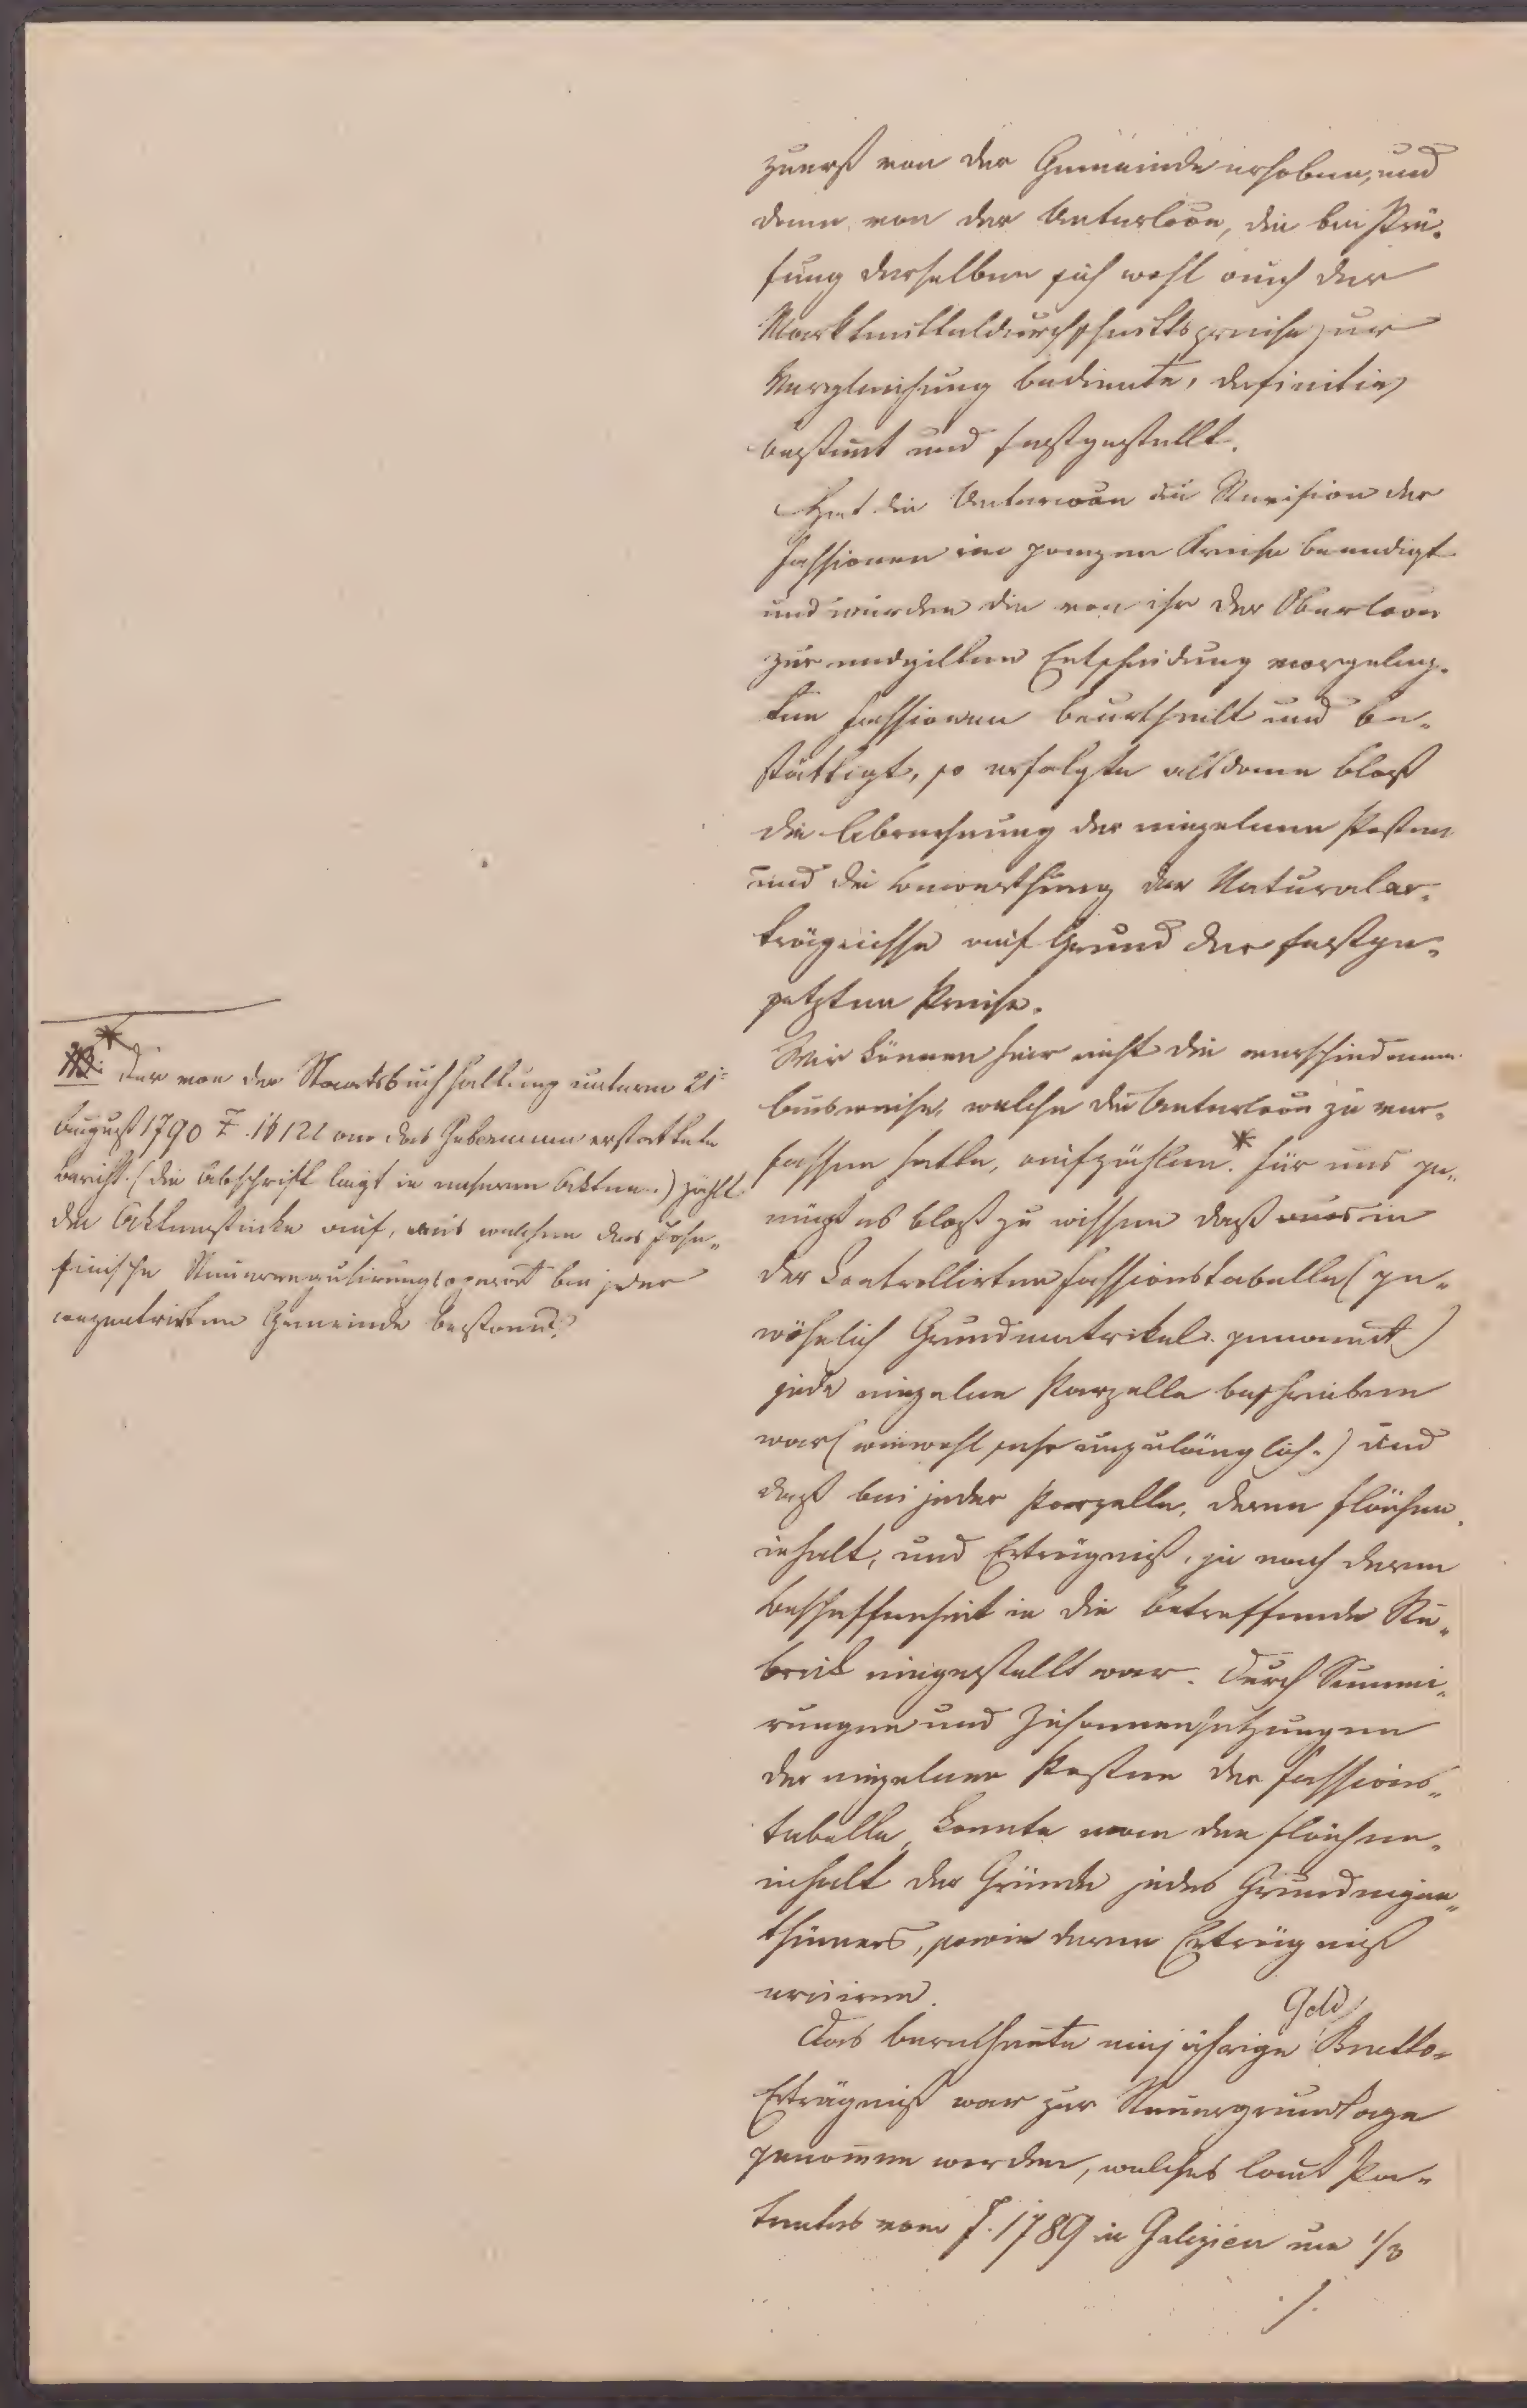 zuerst von der Gemeinde erhoben, und
dann von der Unterloon, die bei Prü-
fung derselben sich wohl auch der
Marktmitteldurchschnittspreise zur
Vergleichung bediente, definitiv
bestimt und festgestellt.
Hat die Unterloon die Revision der
Fassionen im ganzen Kreise beendigt
und wurden die von ihr der Oberloon
zur endgilten Entscheidung vorgeleg-
ten Fassionen beurtheilt und be-
stättigt, so erfolgte alsdann bloß
die Abrechnung der einzelnen Posten
und die Bewerthung der Naturaler-
trägnisse auf Grund der festge-
setzten Preise.
Wir können hier nicht die verschiedenen
Ausweise, welche die Unterloon zu ver-
fassen hatte, aufzählen.* Für uns ge-
nügt es bloß zu wissen daß in
der Controllirten Fassionstabelle (ge-
wöhnlich Grundmatrikel genannt)
jede einzelne Parzelle beschrieben
war (wiewohl sehr unzulänglich.) und
daß bei jeder Parzelle, deren Flächen-
inhalt, und Erträgniß, je nach deren
Beschaffenheit in die betreffende Ru-
brik eingestellt war. Durch Summi-
rungen und Zusammensetzungen
der einzelnen Posten der Fassions-
tabelle, konnte man den Flächen-
inhalt der Gründe jedes Grundeigen-
thümers, sowie deren Erträgniß
eruiren.
Geld
Das berechnete einjährige Brutto-
Erträgniß war zur Steuergrundlage
genomen worden, welches laut Pa-
tentes vom J. 1789 in Galizien um 1/3
./.
* Der von der Staatsbuchhaltung unterm 21
August 1790 Z. 16122 an das Gubernium erstattete
Bericht (die Abschrift liegt in unseren Akten.) zählt
die Aktenstücke auf, aus welchen das Jose-
finische Steuerregulirungsoperat bei jeder
conzentrirten Gemeinde bestand.